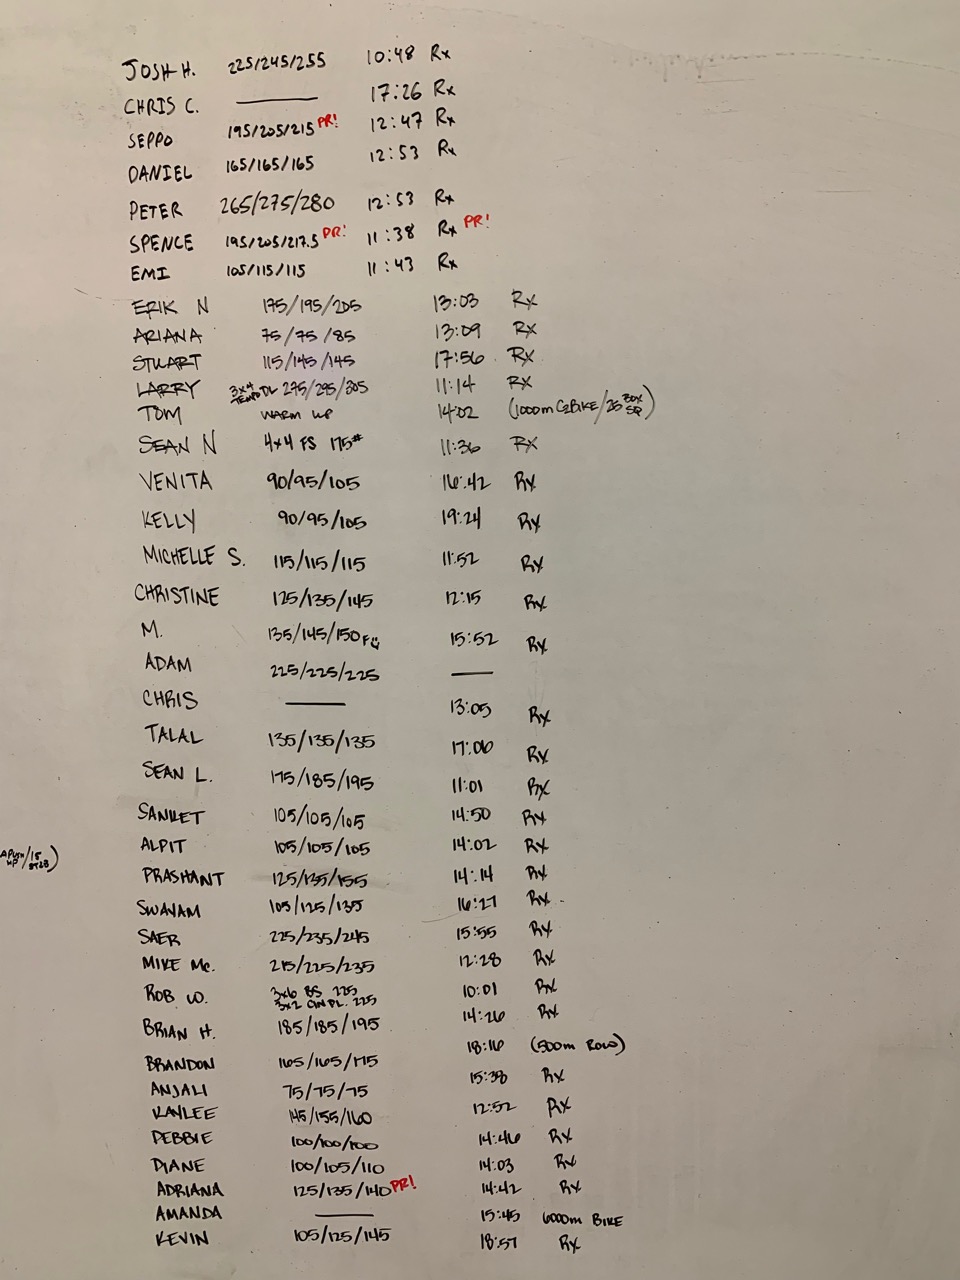 JOSH H. 225/245/255 10:48 Rx
CHRIS C. — 17:26 Rx
SEPPO 195/205/215 PR! 12:47 Rx
DANIEL 165/165/165 12:53 Rx
PETER 265/275/280 12:53 Rx
SPENCE 195/205/217.5 PR! 11:38 Rx PR!
EMI 105/115/115 11:43 Rx
ERIK N 175/195/205 13:03 Rx
ARIANA 75/75/85 13:09 Rx
STUART 115/145/145 17:56 Rx
LARRY 3x4 TEMPO DL 275/295/305 11:14 Rx
TOM WARM UP 14:02 (1000m C2BIKE/25 BOX SQ)
SEAN N 4x4 FS 175# 11:36 Rx
VENITA 90/95/105 16:42 Rx
KELLY 90/95/105 19:24 Rx
MICHELLE S. 115/115/115 11:52 Rx
CHRISTINE 125/135/145 12:15 Rx
M. 135/145/150F 15:52 Rx
ADAM 225/225/225 —
CHRIS — 13:05 Rx
TALAL 135/135/135 17:06 Rx
SEAN L. 175/185/195 11:01 Rx
SANKET 105/105/105 14:50 Rx
ALPIT 105/105/105 14:02 Rx
/15
PRASHANT 125/135/155 14:14 Rx
SWAYAM 105/125/135 16:27 Rx
SAER 225/235/245 15:55 Rx
MIKE Mc. 215/225/235 12:28 Rx
ROB W. 3x6 BS 225 10:01 Rx
3x2 CLN PL. 225
BRIAN H. 185/185/195 14:26 Rx
BRANDON 165/165/175 18:16 (500m ROW)
ANJALI 75/75/75 15:38 Rx
KAYLEE 145/155/160 12:52 Rx
DEBBIE 100/100/100 14:46 Rx
DIANE 100/105/110 14:03 Rx
ADRIANA 125/135/140 PR! 14:42 Rx
AMANDA — 15:45 6000m BIKE
KEVIN 105/125/145 18:57 Rx